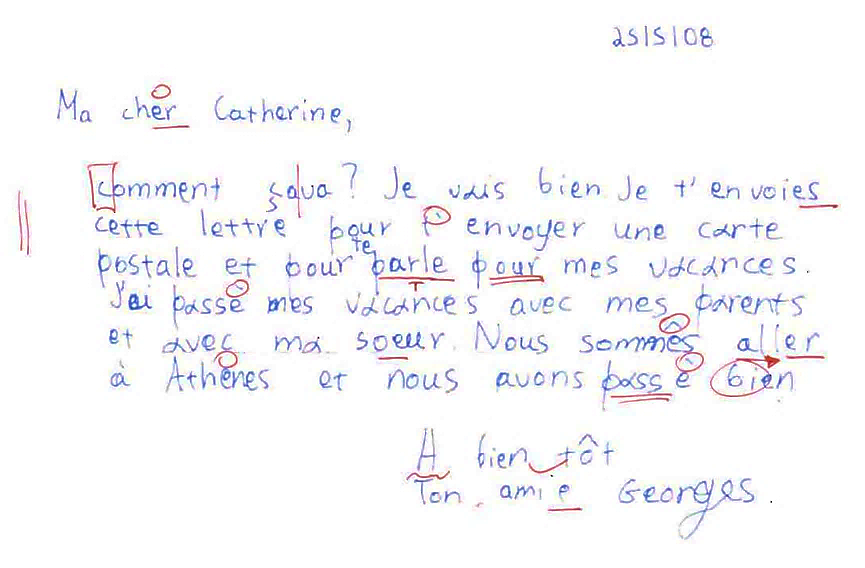 25/5/08
Ma cher Catherine,
Comment çava? Je vais bien Je t'envoies
cette lettre pour t' envoyer une carte
te
postale et pour parle pour mes vacances.
J'ai passé mes vacances avec mes parents
et avec ma soeur. Nous sommes aller
à Athénes et nous avons passé bien
A bien tôt
Ton amie Georges.